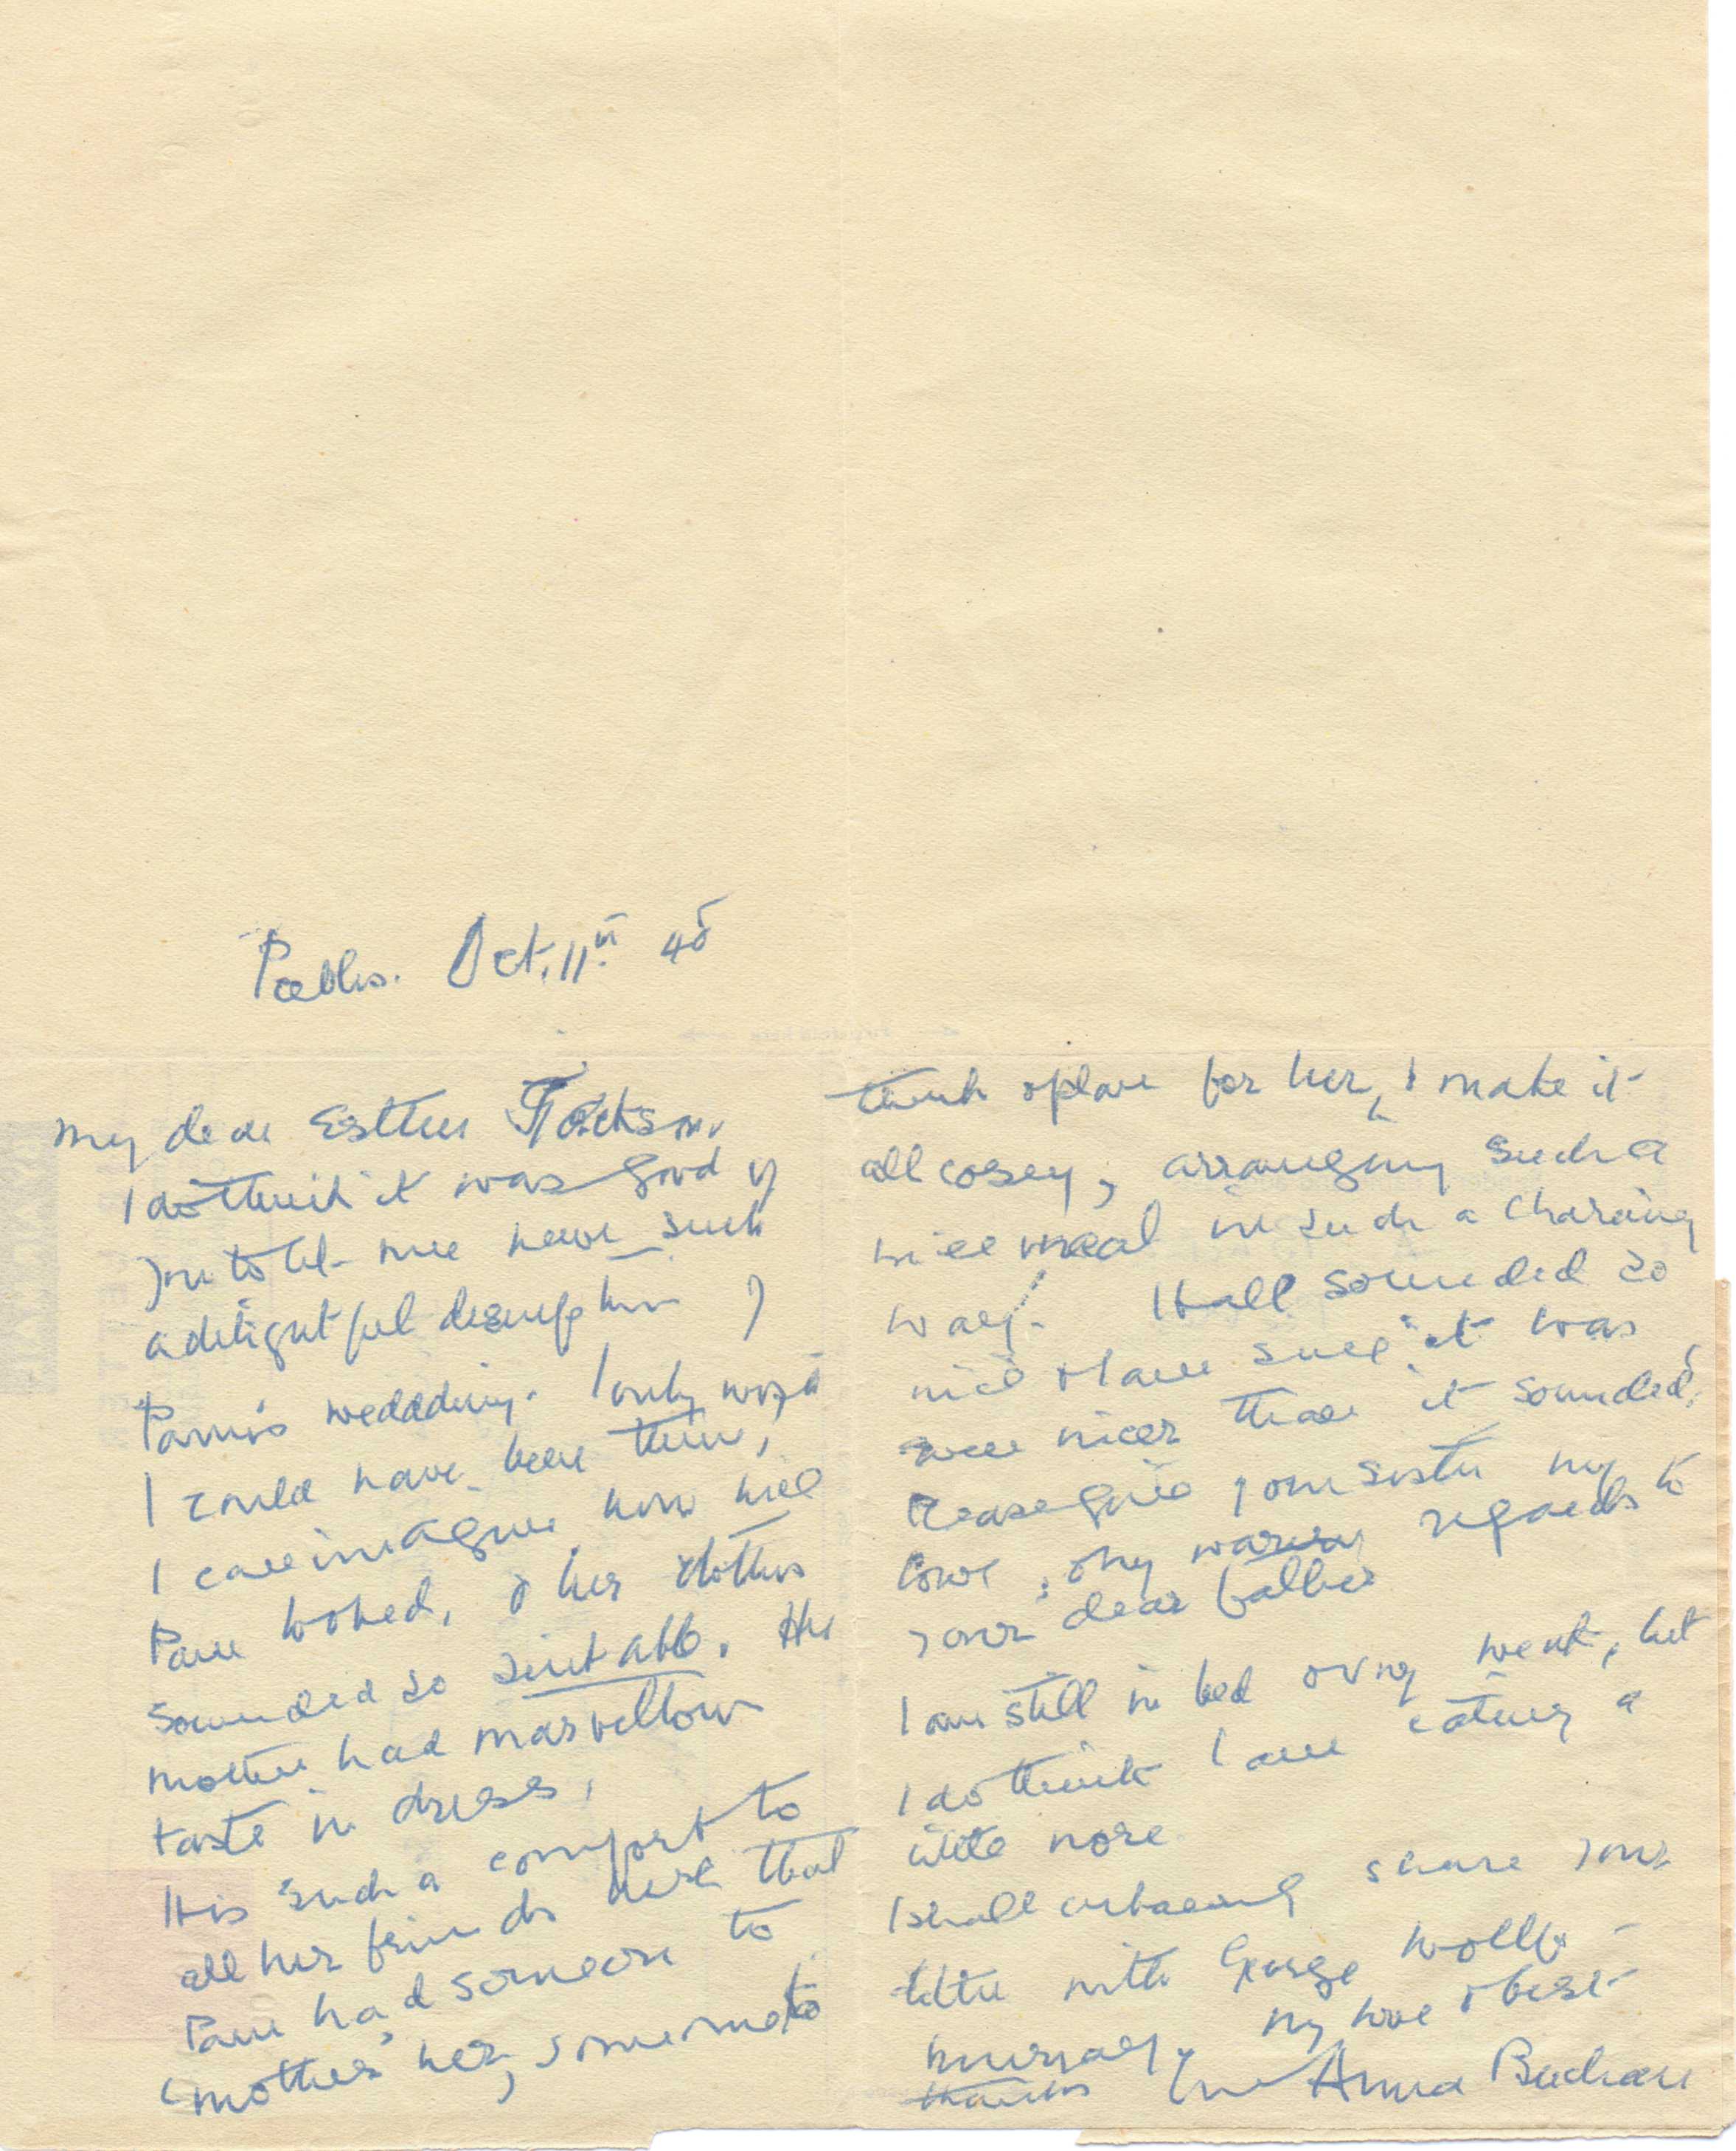 Peebles. Oct. 11th 48
My dear Esther Jackson,
I do think it was good of
you to let me have such
a delightful description of
Pam's weddding. I only wish
I could have been there,
I can imagine how nice
Pam looked, & her clothes
sounded so suitable. Her
mother had marvellous
taste in dress.
It is such a comfort to
all her friends here that
Pam had someone to
'mother' her, someone to
think & plan for her, & make it
all cosey, arranging such a
nice meal in such a charming
way. It all sounded so
nice & I am sure it was
even nicer than it sounded.
Please give your sister my
love, & my warm regards to
your dear father
I am still in bed & very weak, but
I do think I am eating a
little more
I shall certainly share your
letter with George
Murray. My love & best
thanks Anna Buchan